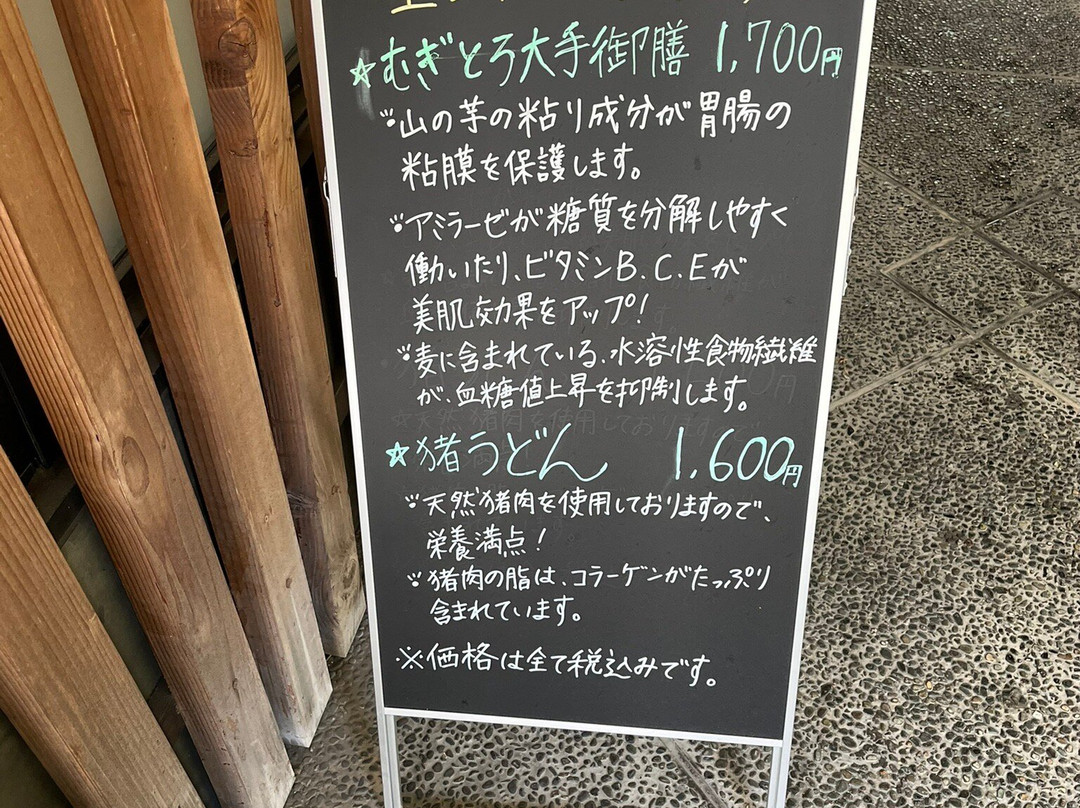 ☆むぎとろ大手御膳 1,700円
山の芋の粘り成分が胃腸の
粘膜を保護します。
アミラーゼが糖質を分解しやすく
働いたり、ビタミンB.C.Eが
美肌効果をアップ!
麦に含まれている、水溶性食物繊維
が、血糖値上昇を抑制します。
☆猪うどん 1,600円
天然猪肉を使用しておりますので、
栄養満点!
猪肉の脂は、コラーゲンがたっぷり
含まれています。
※価格は全て税込みです。